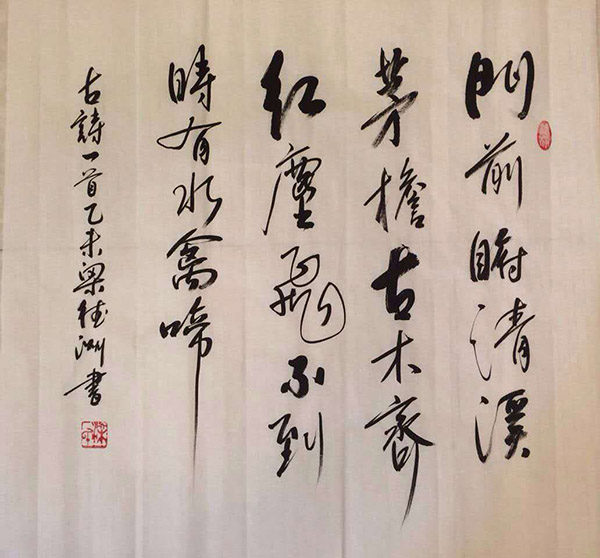 門前俯清溪
茅檐古木齊
紅塵飛不到
時有水禽啼
古詩一首乙未梁德洲書